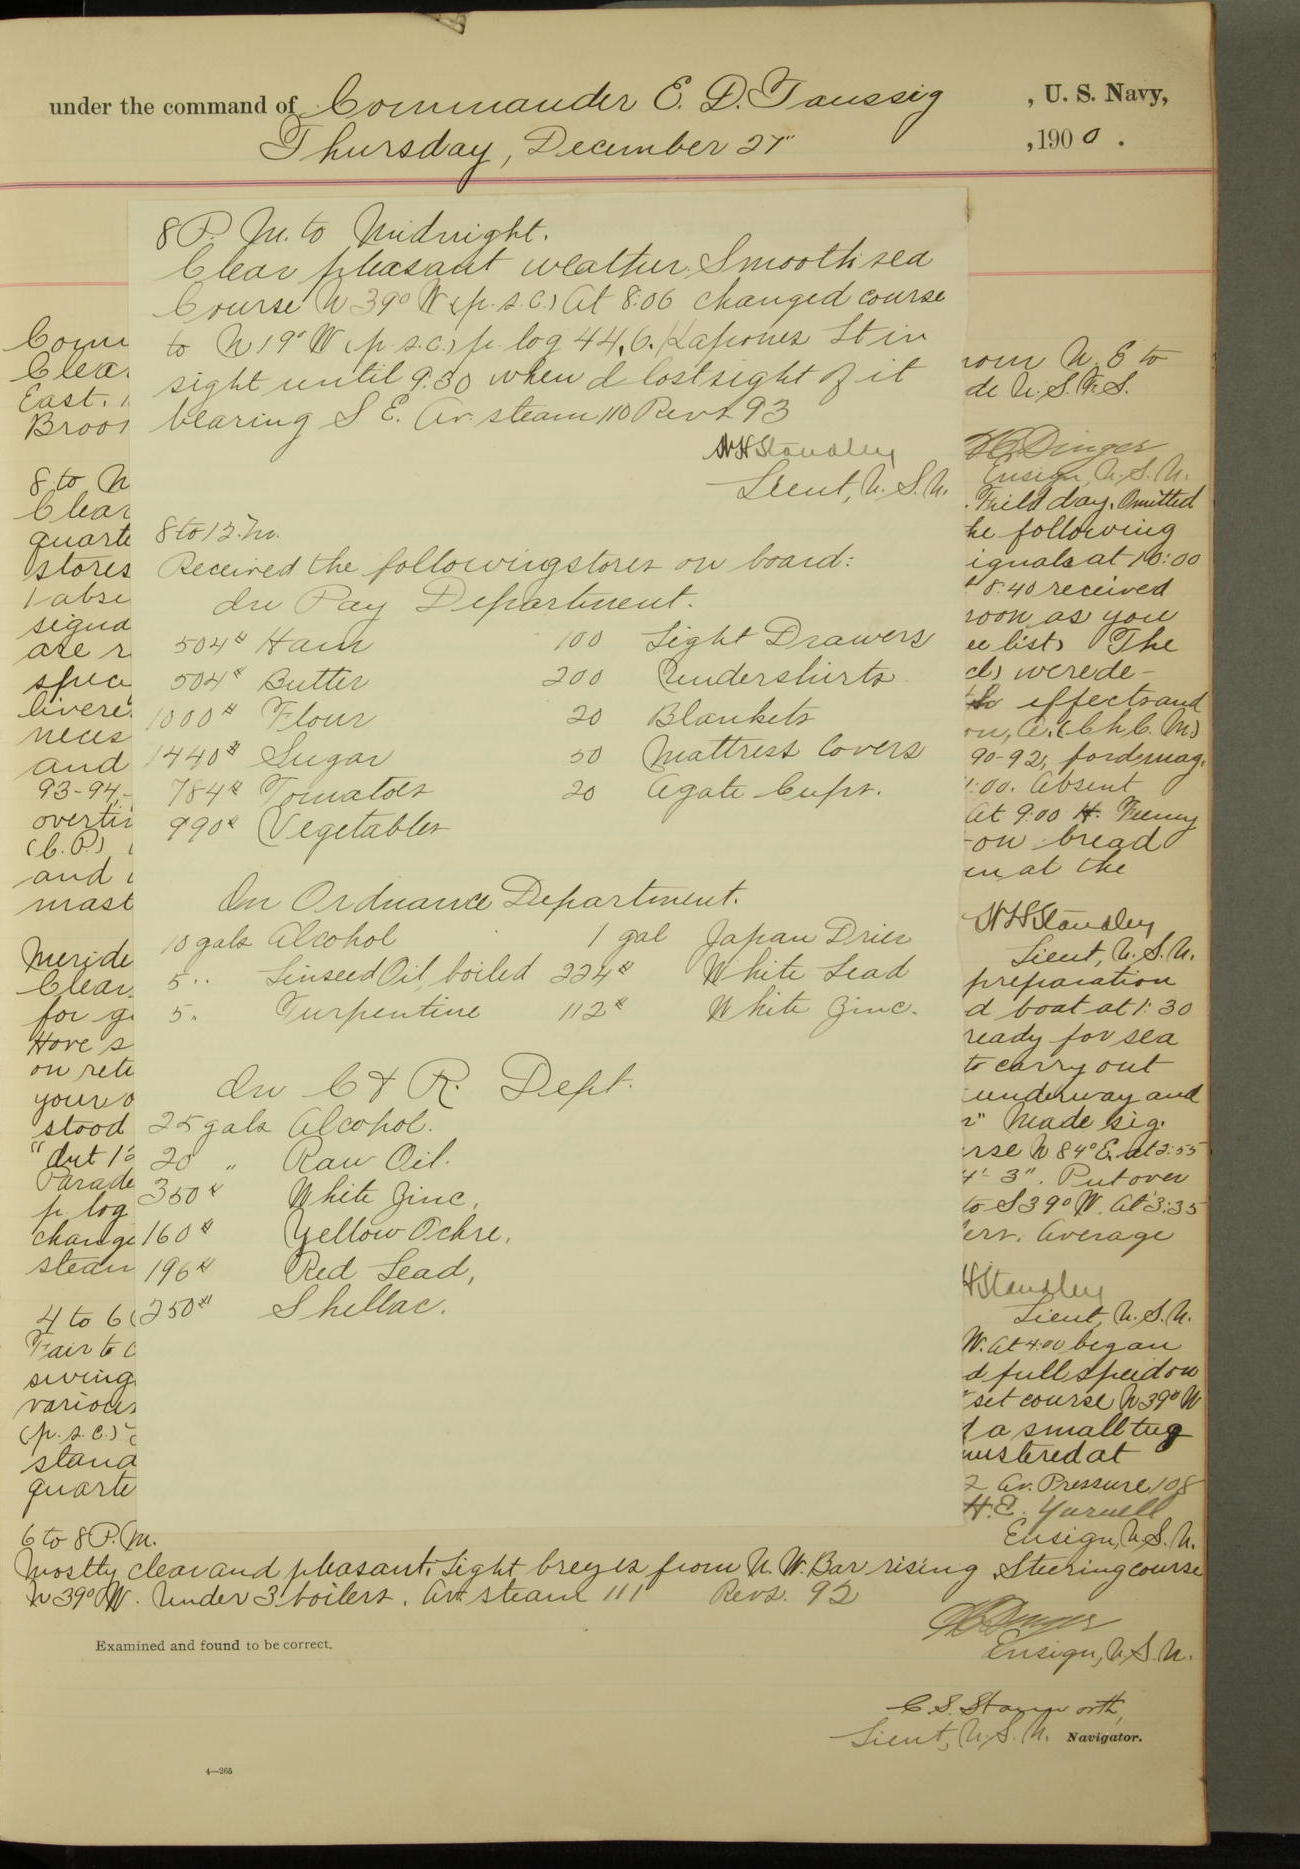 under the command of Commander E. D. Taussig , U. S. Navy,
Thursday, December 27" , 1900 .
8 P. M. to Midnight.
Clear pleasant weather. Smooth sea
Course N 39° W (p.s.c.) At 8:06 changed course
to N 19° W (p.s.c.) p. log 44.6. Kapones Lt in
sight until 9:30 when lost sight of it
bearing S E. Av. steam 110 Revs 93
WHStandley
Lieut, U. S. N.
8 to 12 m.
Received the following stores on board:
In Pay Department.
504# Ham 100 Light Drawers
504# Butter 200 Undershirts
1000# Flour 20 Blankets
1440# Sugar 50 Mattress Covers
784# Tomatoes 20 Agate Cups.
990# Vegetables
In Ordnance Department.
10 gals Alcohol 1 gal Japan Drier
5 " Linseed Oil, boiled 224# White Lead
5 " Turpentine 112# White Zinc.
In C & R. Dept.
25 gals Alcohol.
20 " Raw Oil.
350# White Zinc,
160# Yellow Ochre,
196# Red Lead,
250# Shellac.
Comm
Clea
East.
Broo
8 to M
Clear
quarte
stores
1 abse
signa
are r
spec
livere
neces
and
93-94,
overti
(C.P.)
and
mast
Meride
Clear
for g
Hove s
on rete
your o
stood
"dut 12
Parade
p log
change
steam
4 to 6
Fair to
swing
various
(p.s.c.)
stand
quarte
rom N. E to
de U. S. F. S.
HCDinger
Ensign, U. S. N.
. Field day. Omitted
he following
ignals at 10:00
t 8:40 received
soon as you
ee list) The
d) were de-
effects and
on, A. (Ch C. M.)
90-92, ford. mag.
1:00. Absent
At 9:00 H. Feeney
-on bread
en at the
WHStandley
Lieut, U. S. N.
preparation
d boat at 1:30
ready for sea
to carry out
underway and
" Made sig.
urse N 84° E. at 2:55
4'-3". Put over
to S 39° W. At 3:35
erv. Average
HStandley
Lieut, U. S. N.
W. At 4:00 began
d full speed on
set course N 39° W
d a small tug
mustered at
2 Av. Pressure 108
H. E. Yarnell
Ensign, U. S. N.
6 to 8 P. M.
Mostly clear and pleasant. Light breezes from N. W. Bar rising. Steering course
N 39° W. Under 3 boilers. Av. steam 111 Revs. 92
HCDinger
Ensign, U. S. N.
Examined and found to be correct.
C. S. Stanworth,
Lieut, U. S. N. Navigator.
4—265